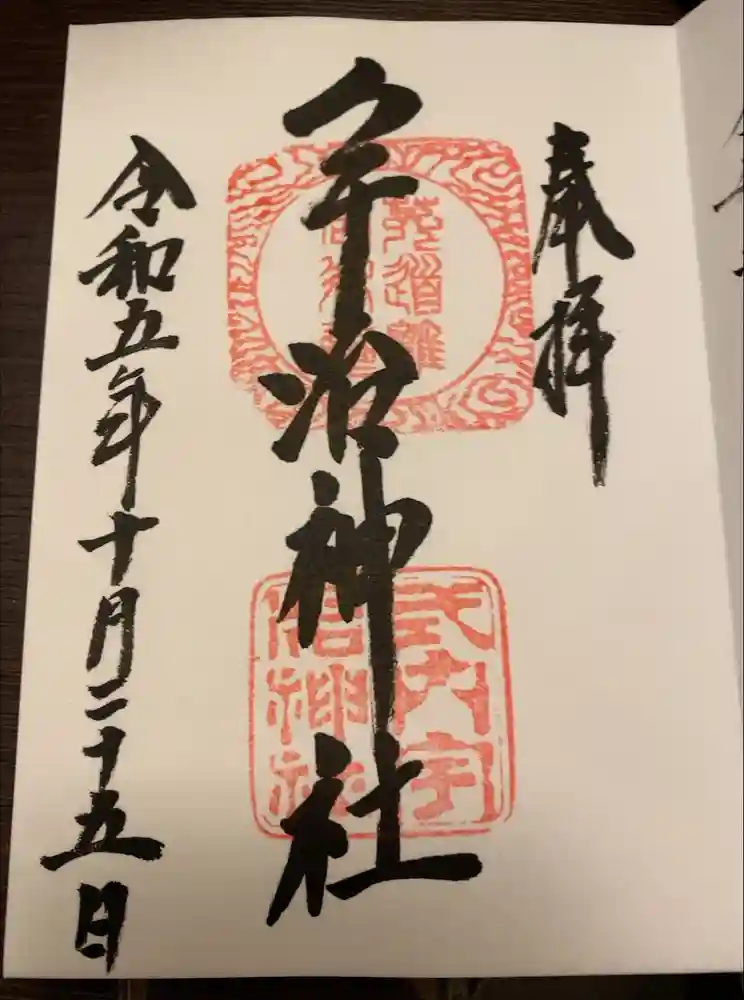 奉拝
宇治神社
式内宇
治神社
令和五年十月二十五日